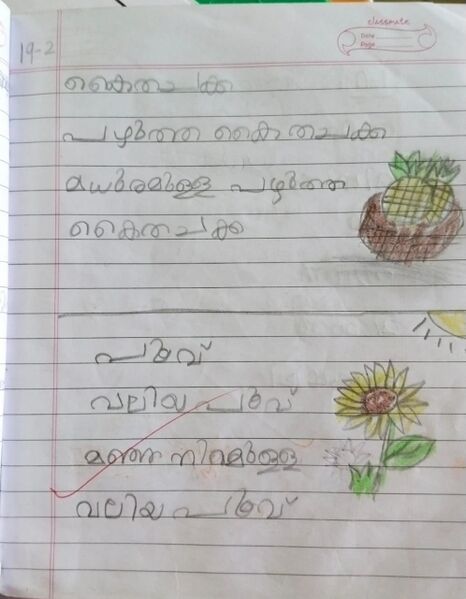 classmate
Date
Page
19-2
കൈതചക്ക
പഴുത്ത കൈതചക്ക
മധുരമുള്ള പഴുത്ത
കൈതചക്ക
പൂവ്
വലിയ പൂവ്
മഞ്ഞ നിറമുള്ള
വലിയ പൂവ്